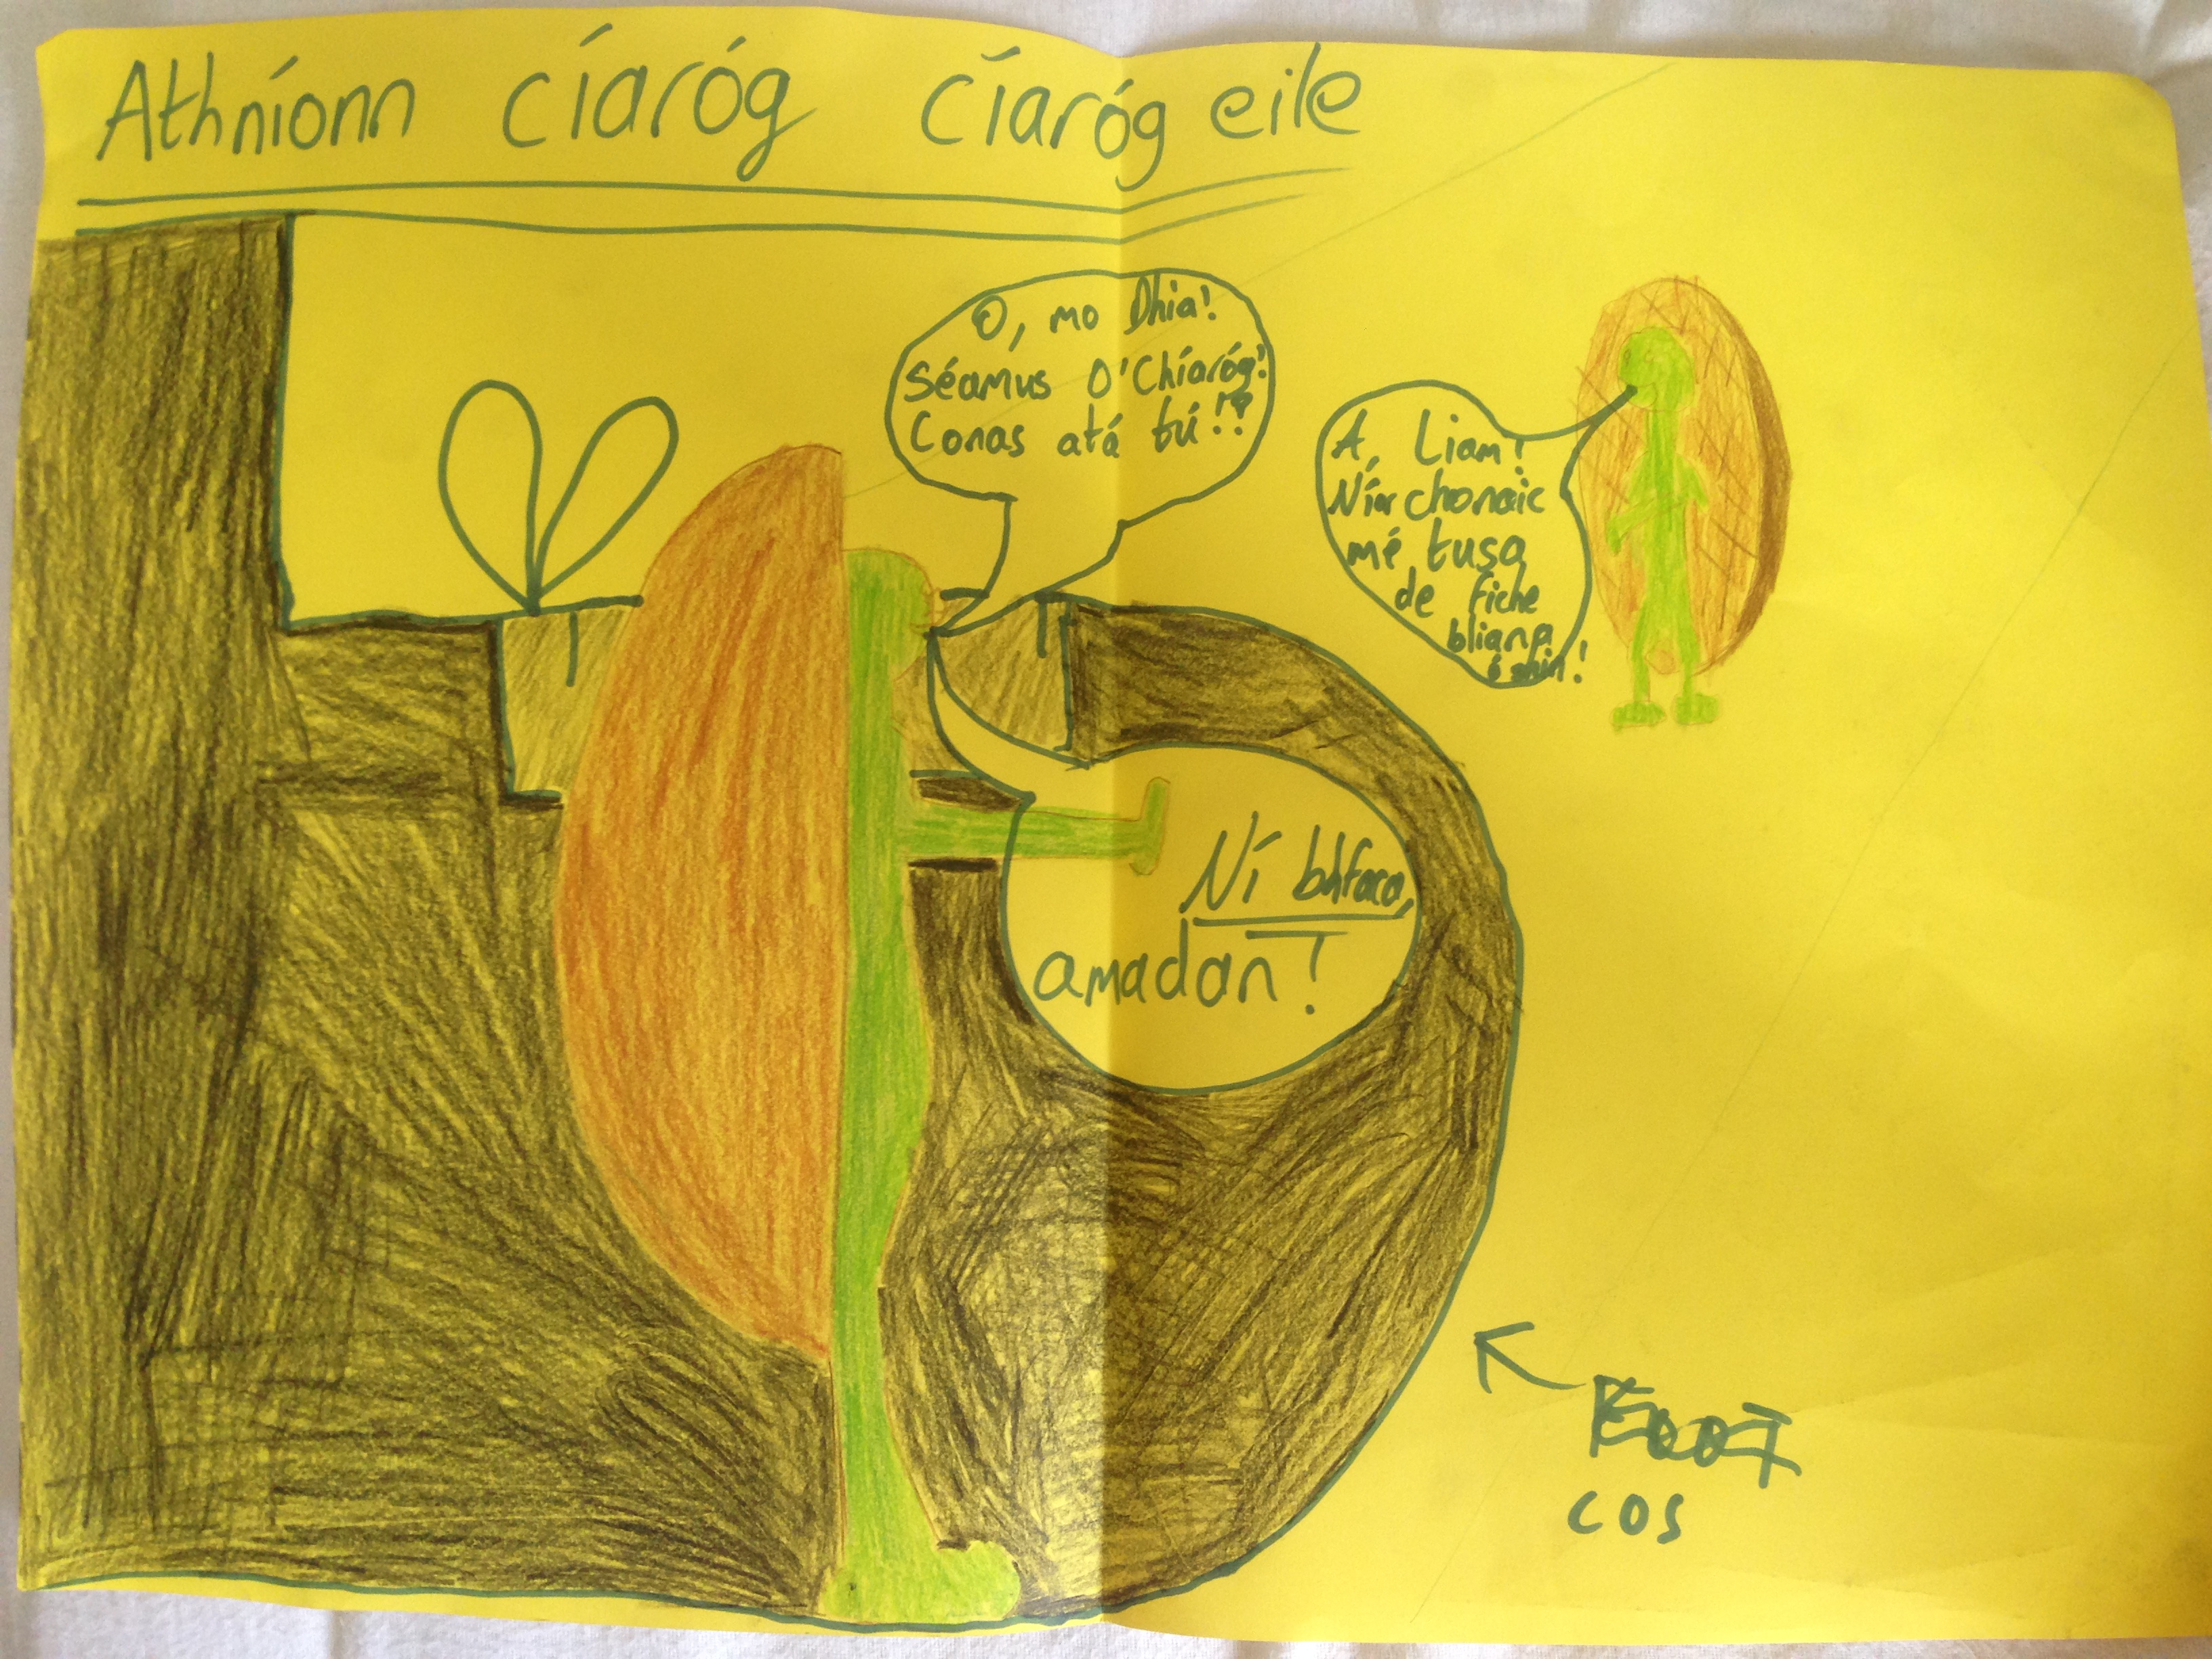 Athníonn cíaróg cíaróg eile
O, mo Dhia!
Séamus O'Chíaróg!
Conas atá tú!?
A Liam!
Níor chonaic
mé tusa
de fiche
bliana
ó shin!
Ní bhfaca,
amadan!
Foot
cos